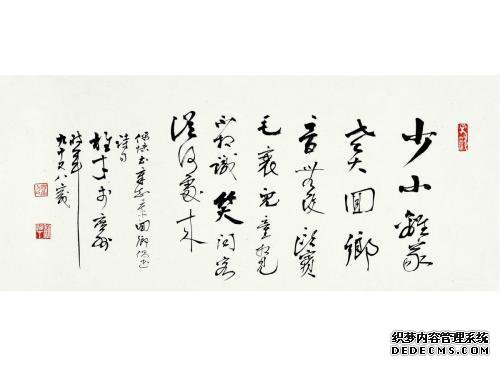 少小離家
老大回鄉
音無改鬢
毛衰兒童相見
不相識笑問客
從何處來
詩句
時年
九十又八歲
织梦内容管理系统
DEDECMS.COM